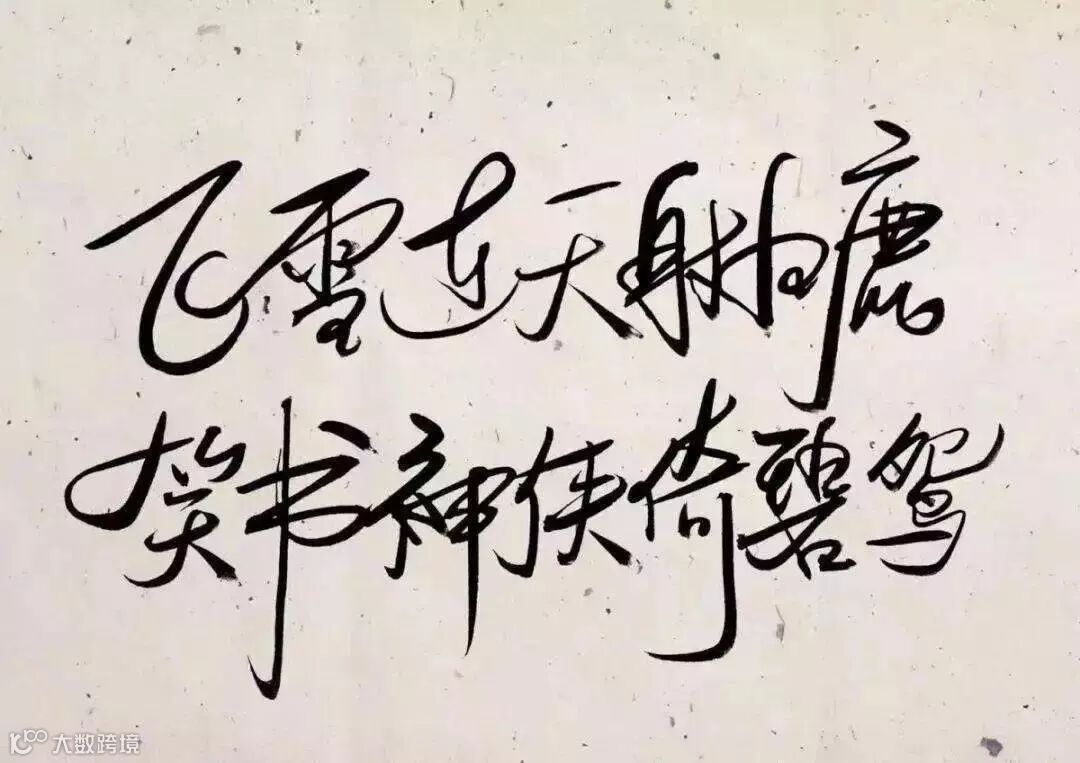 飞雪连天射白鹿
笑书神侠倚碧鸳
大数跨境